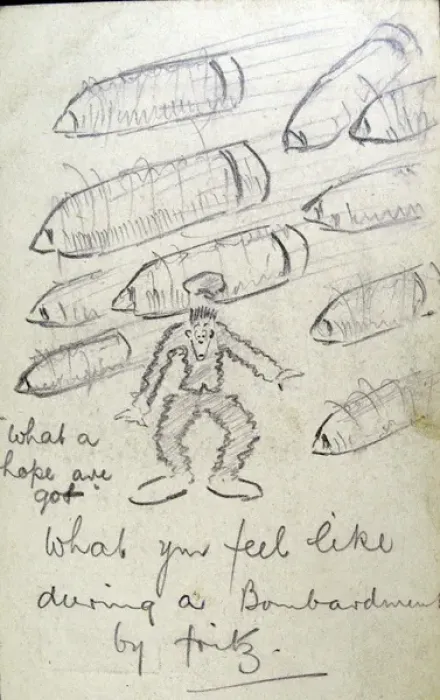 "What a
hope ave
got"
What you feel like
during a Bombardment
by Fritz.